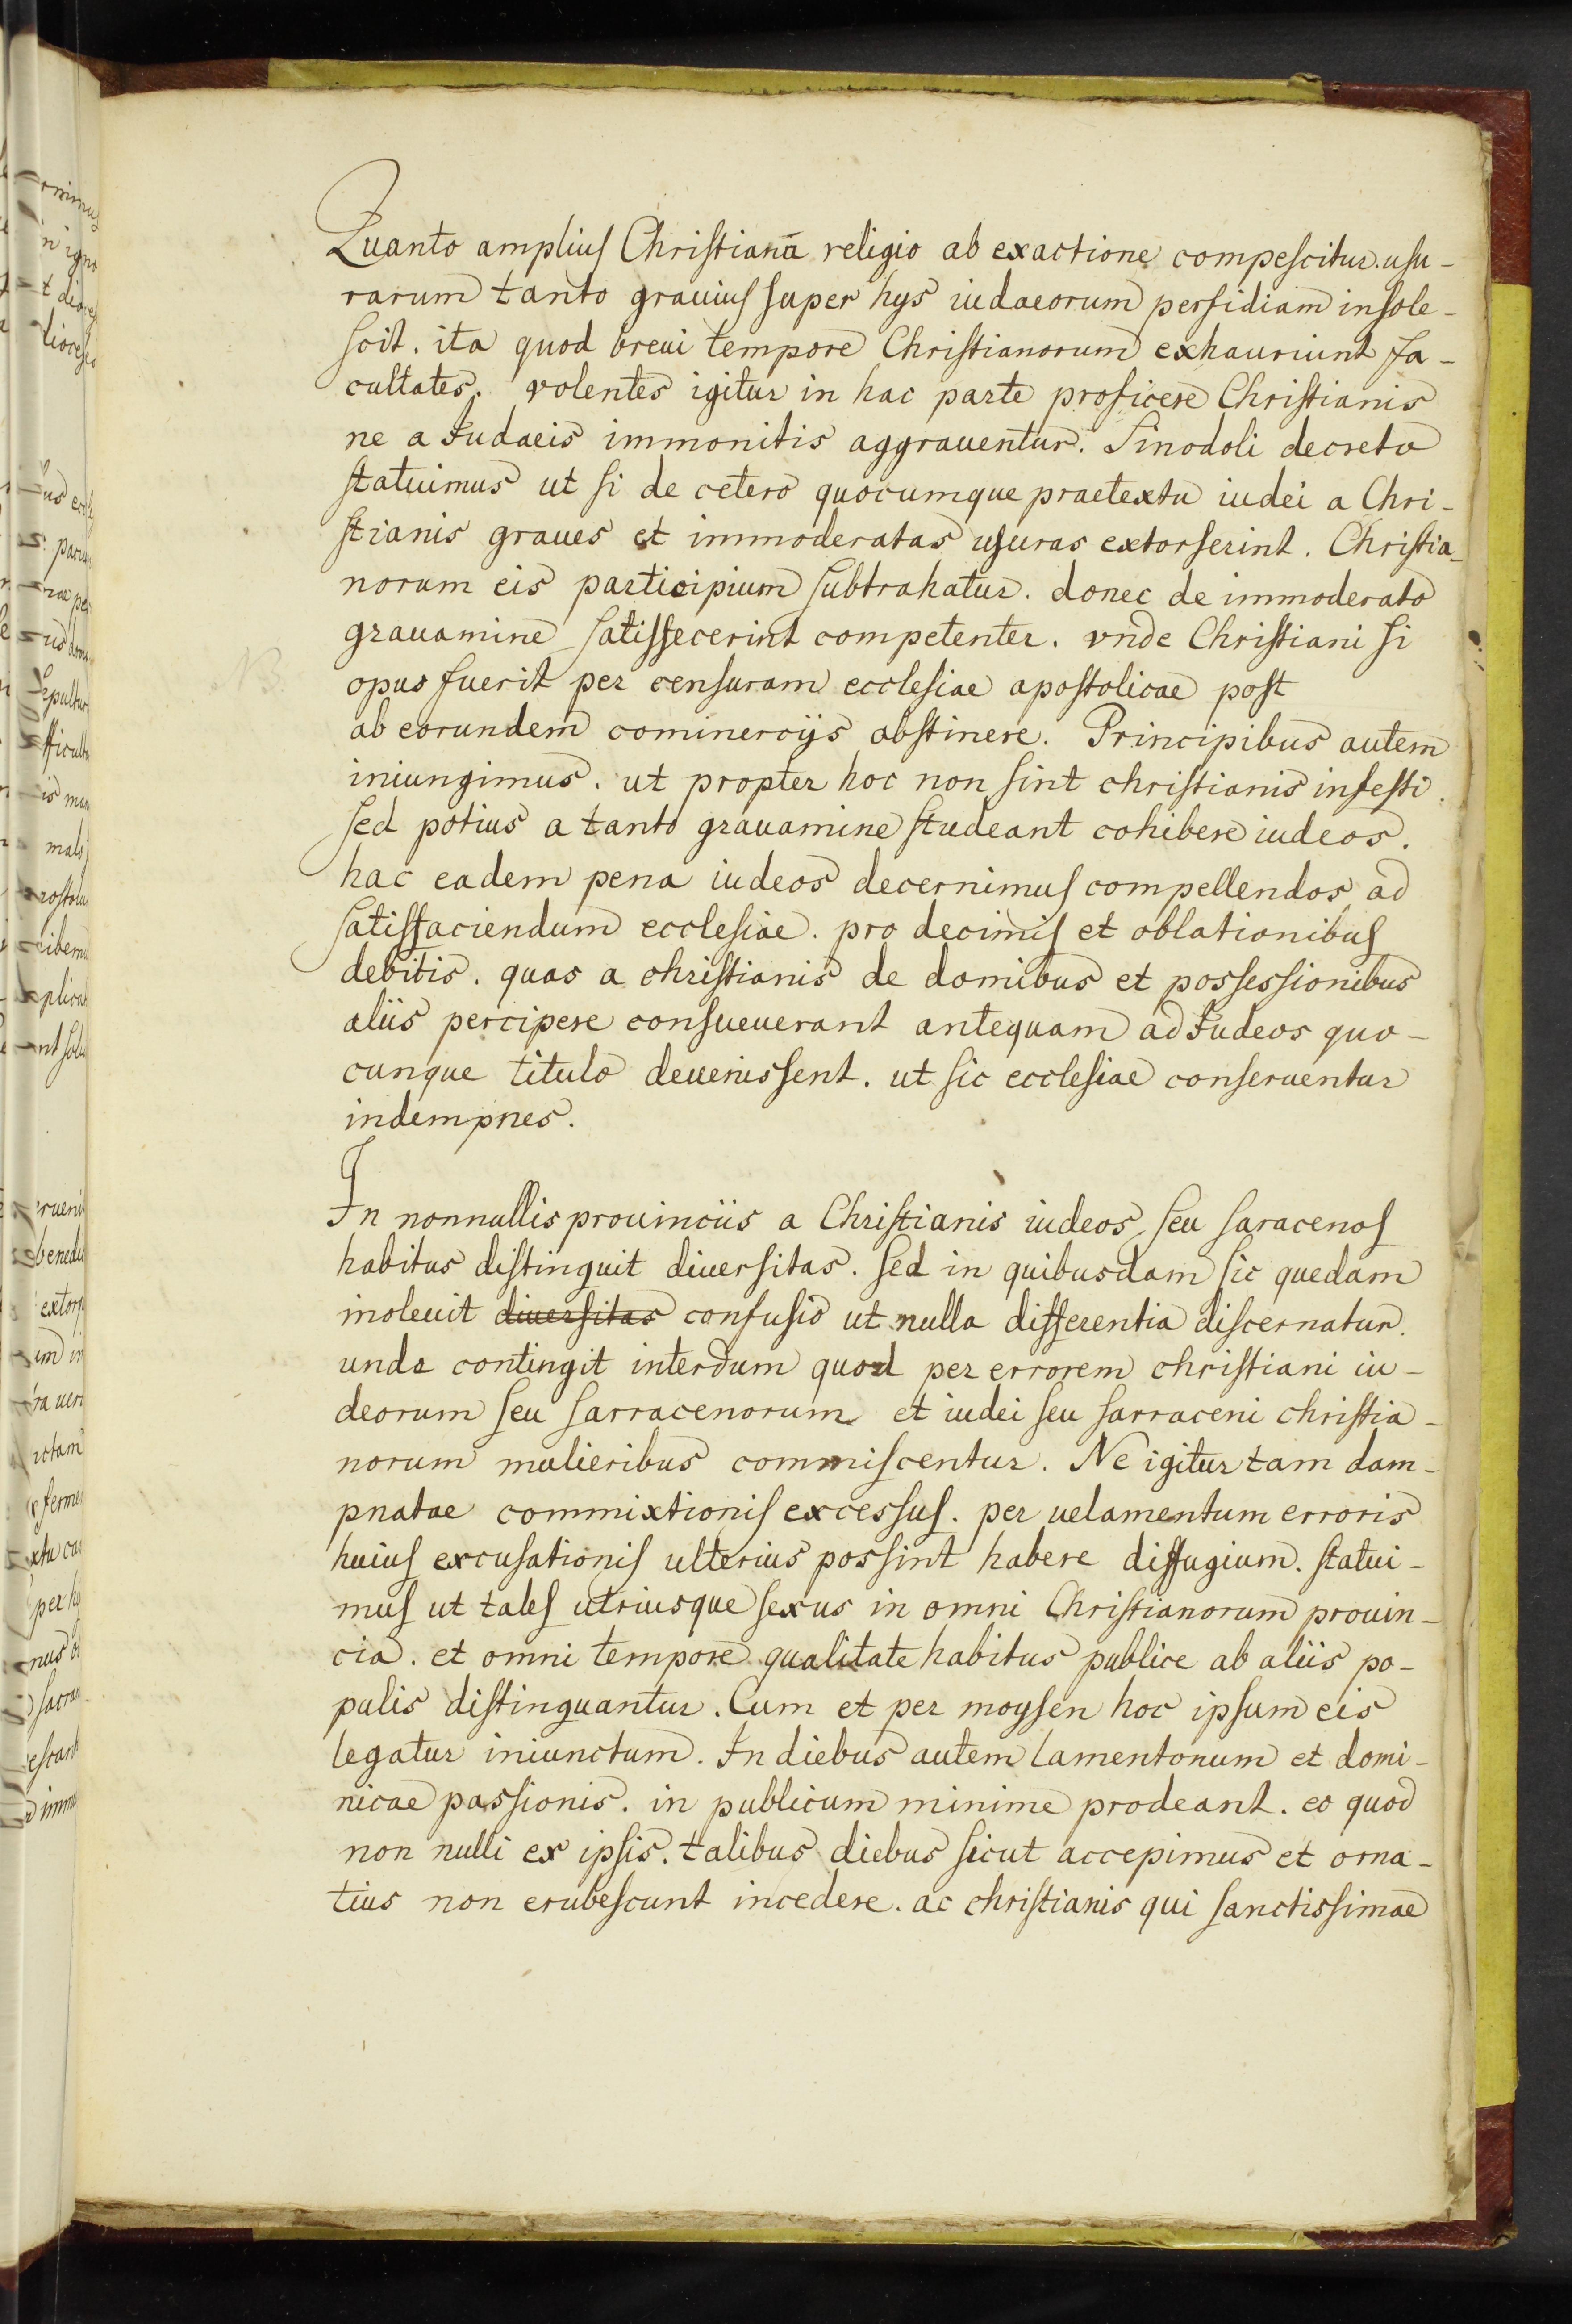 Quanto amplius Christianā religio ab exactione compescitur. usu-
rarum tanto grauius super hys iudaeorum perfidiam insole-
scit. ita quod breui tempore Christianorum exhauriunt fa-
cultates. volentes igitur in hac parte proficere Christianis
ne a Iudaeis immonitis aggrauentur. Sinodoli decreto
statuimus ut si de cetero quocumque praetextu iudei a Chri-
stianis graues et immoderatas usuras extorserint. Christia-
norum eis participium subtrahatur. donec de immoderato
grauamine satisfecerint competenter. vnde Christiani si
NB opus fuerit per censuram ecclesiae apostolicae post
ab eorundem cominercijs abstinere. Principibus autem
iniungimus. ut propter hoc non sint christianis infesti.
sed potius a tanto grauamine studeant cohibere iudeos.
hac eadem pena iudeos decernimus compellendos ad
satisfaciendum ecclesiae. pro decimis et oblationibus
debitis. quas a christianis de domibus et possessionibus
aliis percipere consueuerant antequam ad Iudeos quo-
cunque titulo deuenissent. ut sic ecclesiae conseruentur
indempnes.
In nonnullis prouinciis a Christianis iudeos seu saracenos
habitus distinguit diuersitas. sed in quibusdam sic quedam
inoleuit diuersitas confusio ut nulla differentia discernatur.
unde contingit interdum quod per errorem christiani iu-
deorum seu sarracenorum et iudei seu sarraceni christia-
norum mulieribus commiscentur. Ne igitur tam dam-
pnatae commixtionis excessus. per uelamentum erroris
huius excusationis ulterius possint habere diffugium. statui-
mus ut tales utriusque sexus in omni Christianorum prouin-
cia. et omni tempore qualitate habitus publice ab aliis po-
pulis distinguantur. Cum et per moysen hoc ipsum eis
legatur iniunctum. In diebus autem lamentonum et domi-
nicae passionis. in publicum minime prodeant. eo quod
non nulli ex ipsis. talibus diebus sicut accepimus et orna-
tius non erubescunt incedere. ac christianis qui sanctissimae